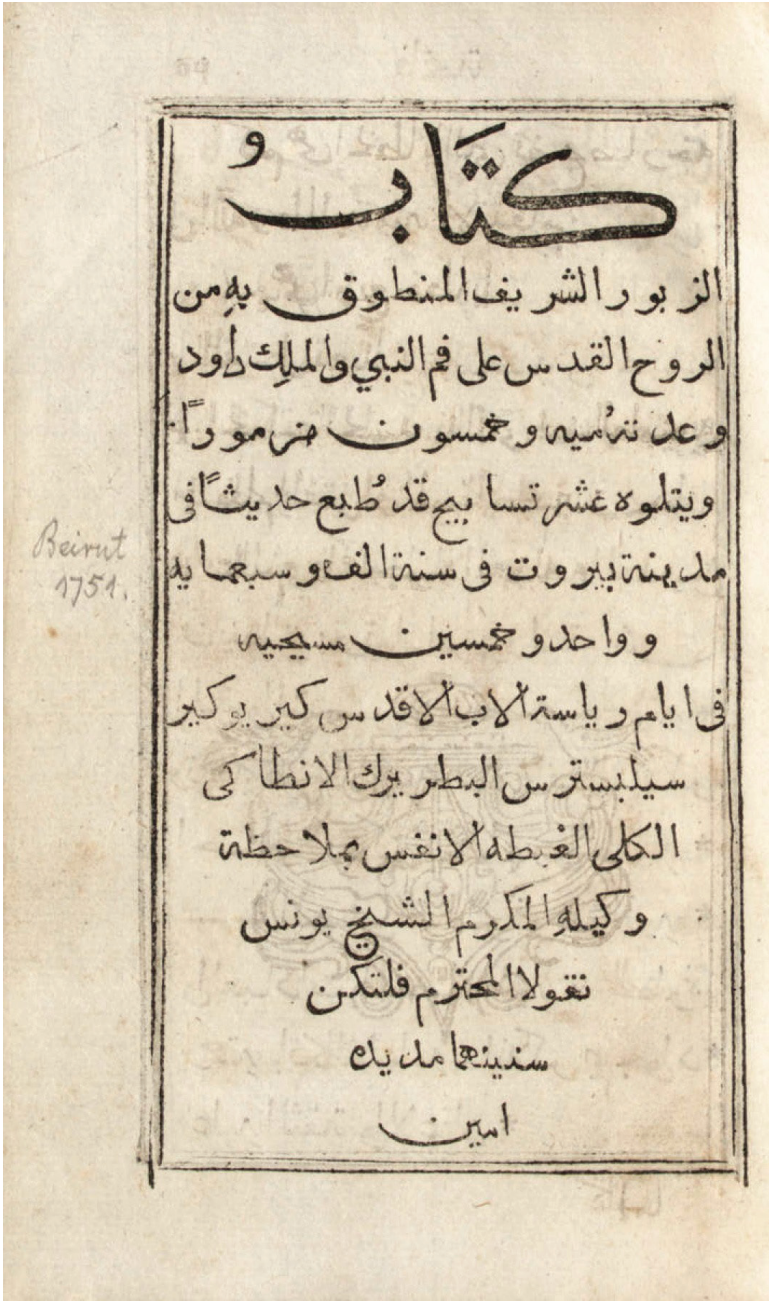 كتَابُ
الزبور الشريف المنطوق بهِ من
الروح القدس على فم النبي والملِك داود
وعدتهُ ميه وخمسون مزمورًا
ويتلوه عشر تسابيح قد طُبع حديثًا فى
مدينة بيروت فى سنة الف وسبعمايه
وواحد وخمسين مسيحيه
فى ايام رياسة الاب الاقدس كير يوكير
سيلبسترس البطريرك الانطاكى
الكلى الغبطه الانفس بملاحظة
وكيلهِ المكرم الشيخ يونس
نقولا المحترم فلتكن
سنينهما مديده
امين
Beirut
1751.